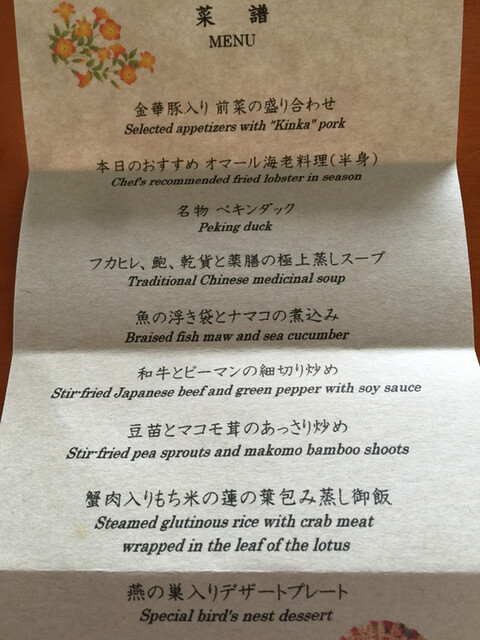 菜 譜
MENU
金華豚入り 前菜の盛り合わせ
Selected appetizers with "Kinka" pork
本日のおすすめ オマール海老料理(半身)
Chef's recommended fried lobster in season
名物 ペキンダック
Peking duck
フカヒレ、鮑、乾貨と薬膳の極上蒸しスープ
Traditional Chinese medicinal soup
魚の浮き袋とナマコの煮込み
Braised fish maw and sea cucumber
和牛とピーマンの細切り炒め
Stir-fried Japanese beef and green pepper with soy sauce
豆苗とマコモ茸のあっさり炒め
Stir-fried pea sprouts and makomo bamboo shoots
蟹肉入りもち米の蓮の葉包み蒸し御飯
Steamed glutinous rice with crab meat
wrapped in the leaf of the lotus
燕の巣入りデザートプレート
Special bird's nest dessert